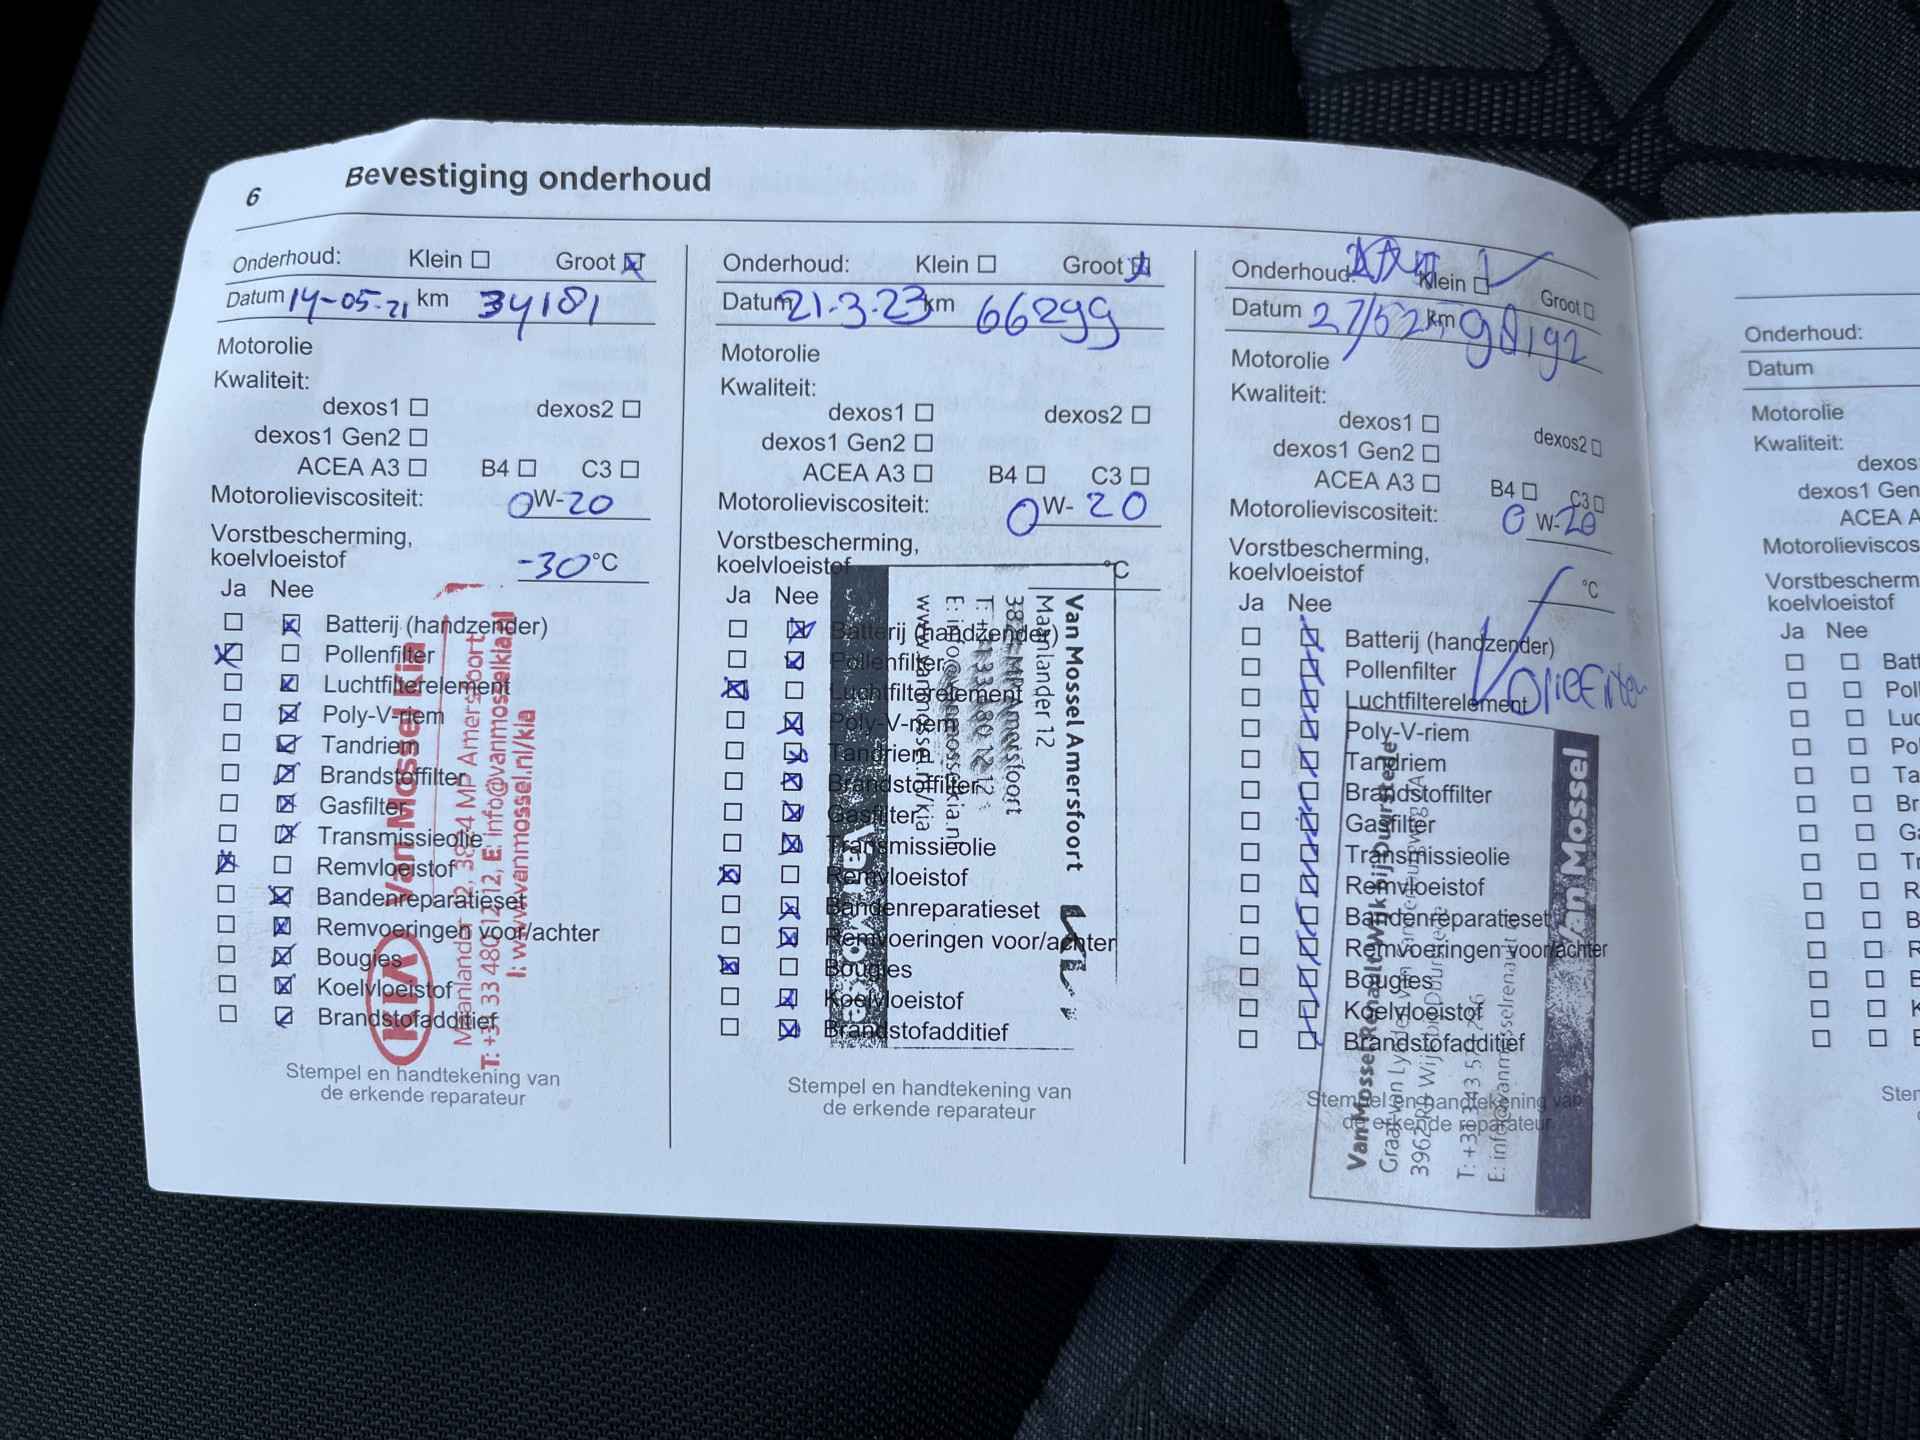 6
Bevestiging onderhoud
Onderhoud: Klein Groot
Datum 14-05-21 km 34181
Motorolie
Kwaliteit:
dexos1 dexos2
dexos1 Gen2
ACEA A3 B4 C3
Motorolieviscositeit: 0W-20
Vorstbescherming,
koelvloeistof -30°C
Ja Nee
Batterij (handzender)
Pollenfilter
Luchtfilterelement
Poly-V-riem
Tandriem
Brandstoffilter
Gasfilter
Transmissieolie
Remvloeistof
Bandenreparatieset
Remvoeringen voor/achter
Bougies
Koelvloeistof
Brandstofadditief
Stempel en handtekening van
de erkende reparateur
KIA Van Mossel Kia
Maanlander 12, 3824 MP Amersfoort
T: +31 33 480 12 12, E: info@vanmosselkia.nl
I: www.vanmossel.nl/kia
Onderhoud: Klein Groot
Datum 21-3-23 km 66299
Motorolie
Kwaliteit:
dexos1 dexos2
dexos1 Gen2
ACEA A3 B4 C3
Motorolieviscositeit: 0W-20
Vorstbescherming,
koelvloeistof °C
Ja Nee
Batterij (handzender)
Pollenfilter
Luchtfilterelement
Poly-V-riem
Tandriem
Brandstoffilter
Gasfilter
Transmissieolie
Remvloeistof
Bandenreparatieset
Remvoeringen voor/achter
Bougies
Koelvloeistof
Brandstofadditief
Stempel en handtekening van
de erkende reparateur
Van Mossel Amersfoort
Maanlander 12
3824 MP Amersfoort
T: +31 33 480 12 12
E: info@vanmosselkia.nl
www.vanmossel.nl/kia
Van Mossel
Onderhoud: Klein Groot
Datum 27/5 km
Motorolie
Kwaliteit:
dexos1 dexos2
dexos1 Gen2
ACEA A3 B4 C3
Motorolieviscositeit: 0W-20
Vorstbescherming,
koelvloeistof °C
Ja Nee
Batterij (handzender)
Pollenfilter
Luchtfilterelement oliefilter
Poly-V-riem
Tandriem
Brandstoffilter
Gasfilter
Transmissieolie
Remvloeistof
Bandenreparatieset
Remvoeringen voor/achter
Bougies
Koelvloeistof
Brandstofadditief
Stempel en handtekening van
de erkende reparateur
Van Mossel
Van Mossel Renault Wijk bij Duurstede
Onderhoud:
Datum
Motorolie
Kwaliteit:
dexos
dexos1 Gen
ACEA A
Motorolieviscos
Vorstbescherm
koelvloeistof
Ja Nee
Batt
Pol
Luc
Po
Ta
Br
Ga
Tr
R
B
R
B
K
E
Sten